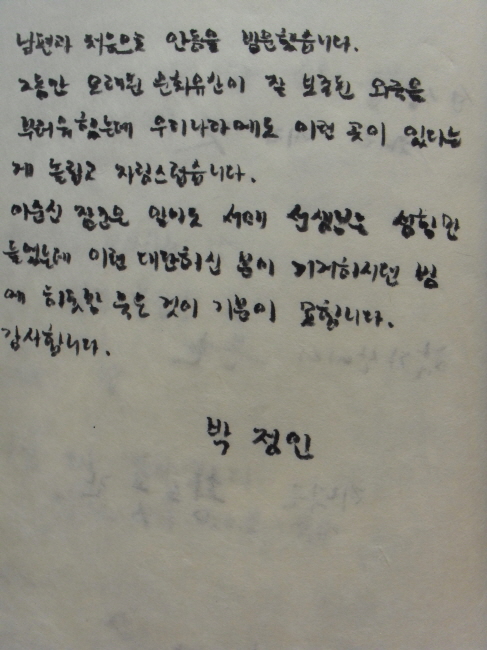 남편과 처음으로 안동을 방문했습니다.
그동안 오래된 문화유산이 잘 보존된 외국을
부러워했는데 우리나라에도 이런 곳이 있다는
게 놀랍고 자랑스럽습니다.
이순신 장군은 알아도 서애 선생님은 성함만
들었는데 이런 대단하신 분이 기거하시던 방
에 하룻밤 묵은 것이 기분이 묘합니다.
감사합니다.
박정인